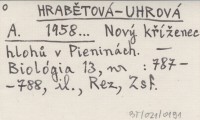 HRABĚTOVÁ-UHROVÁ
A. 1958... Nový kříženec
hlohů v Pieninách. —
Biológia 13, nr : 787-
-788, il., Rez, Zsf.